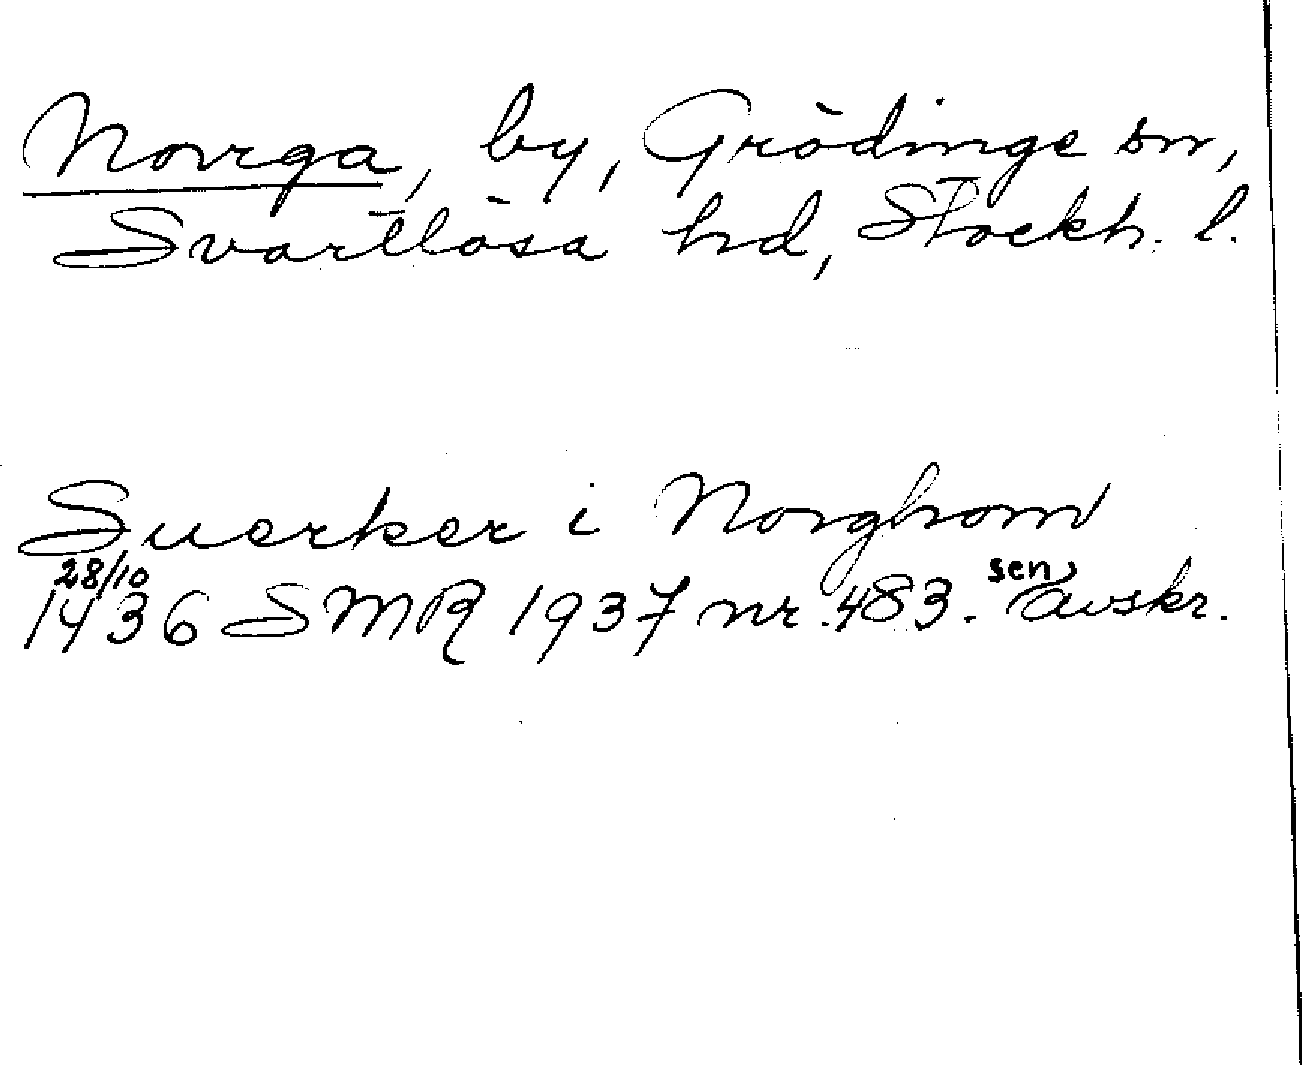 Norrga, by, Grödinge sn,
Svartlösa hd, Stockh. l.
Suerker i Norghom
28/10
1436 SMR 1937 nr 483. sen avskr.